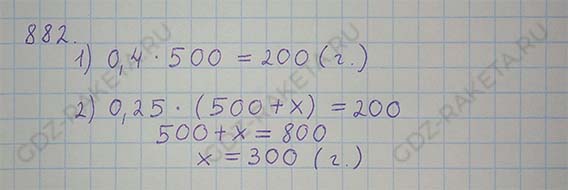 882.
1) 0,4 · 500 = 200 (г.)
2) 0,25 · (500 + x) = 200
500 + x = 800
x = 300 (г.)
GDZ-RAKETA.RU
GDZ-RAKETA.RU
GDZ-RAKETA.RU
GDZ-RAKETA.RU